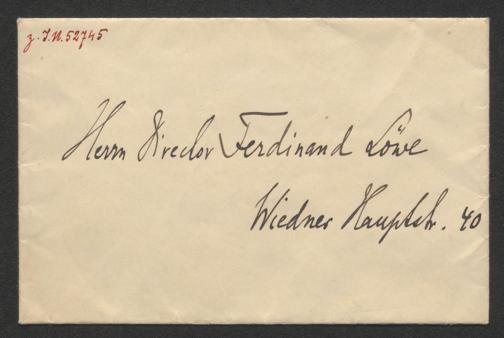 z. I.N. 52745
Herrn Director Ferdinand Löwe
Wiedner Hauptstr. 40